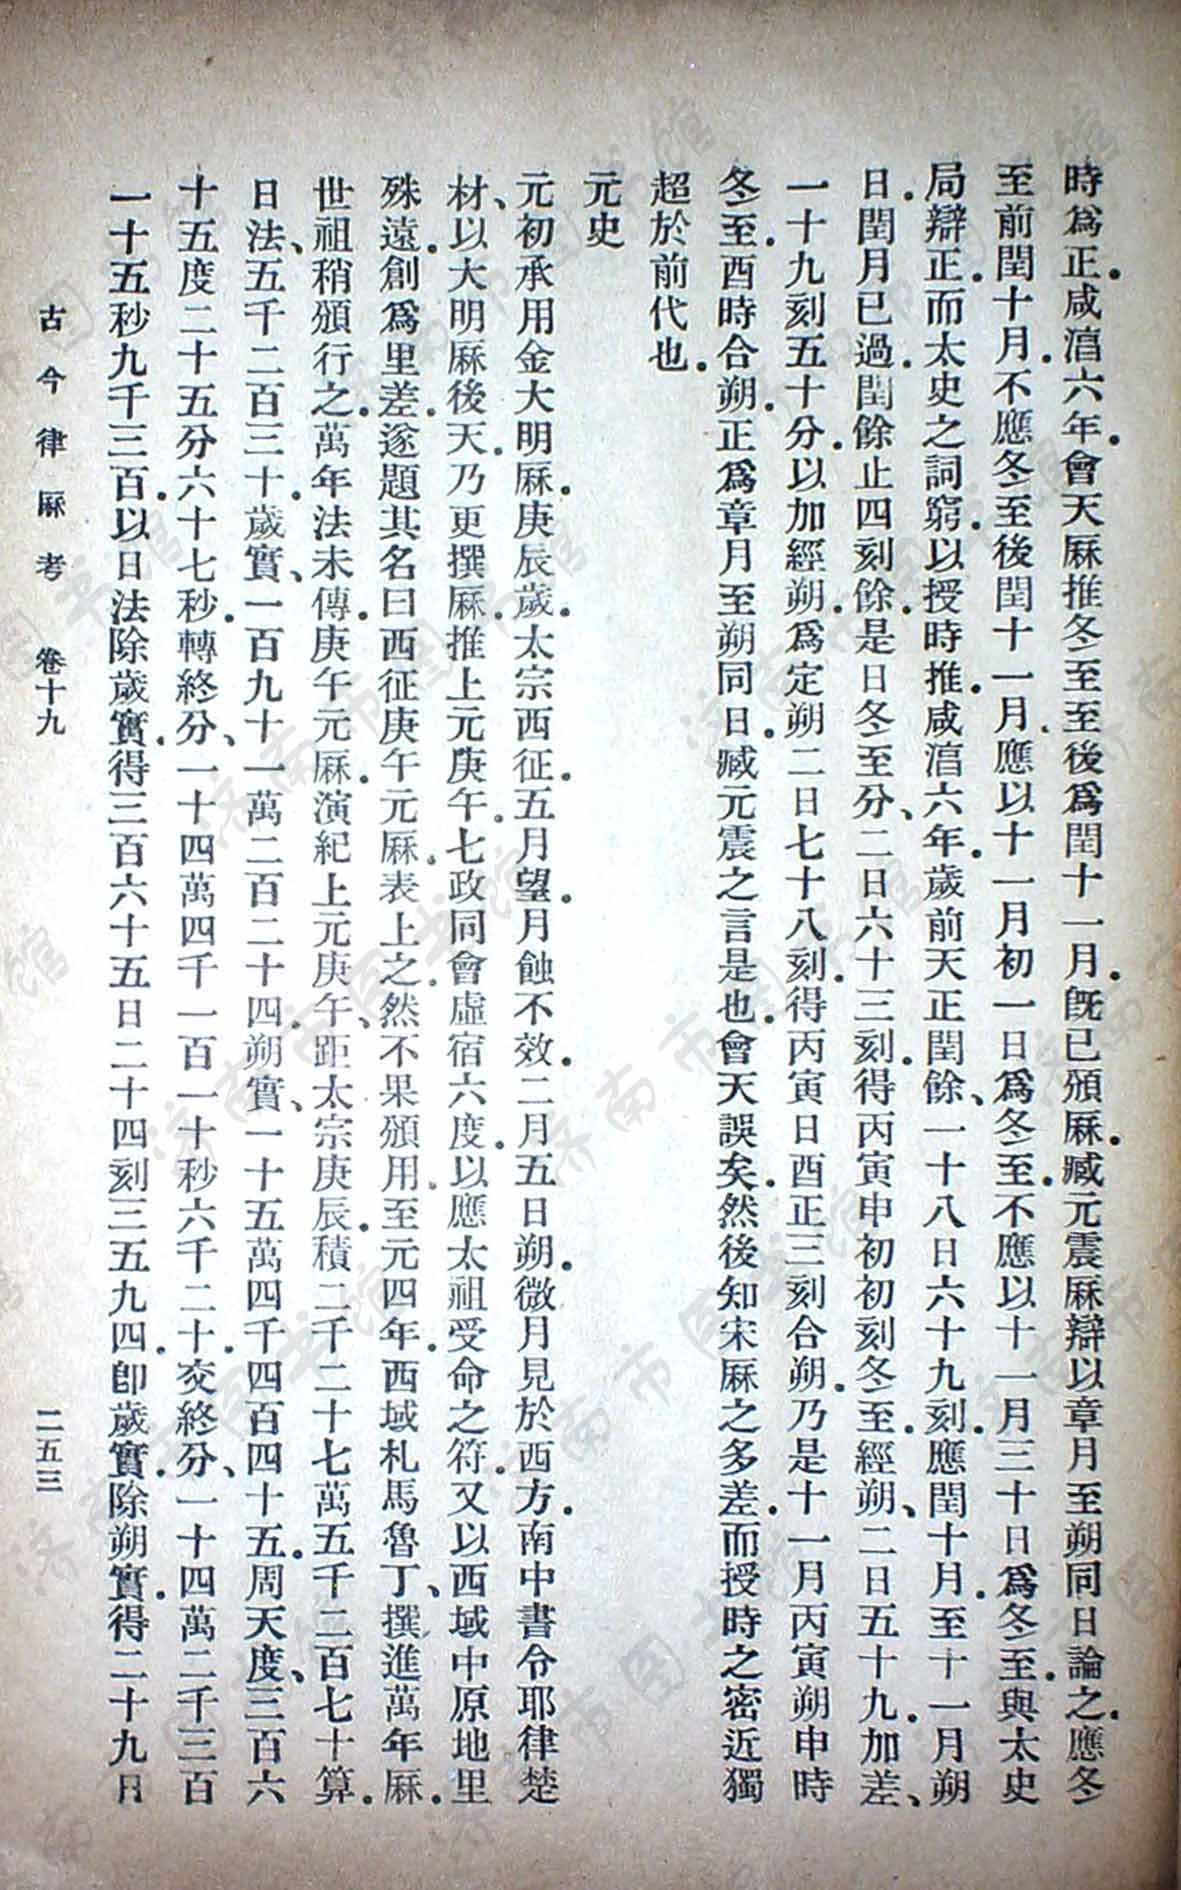 時爲正咸淳六年會天厤推冬至至後爲閏十一月旣已頒厤臧元震厤辯以章月至朔同日論之應冬
至前閏十月不應冬至後閏十一月應以十一月初一日爲冬至不應以十一月三十日爲冬至與太史
局辯正而太史之詞窮以授時推咸淳六年歲前天正閏餘一十八日六十九刻應閏十月至十一月朔
日閏月已過閏餘止四刻餘是日冬至分二日六十三刻得丙寅申初初刻冬至經朔二日五十九加差
一十九刻五十分以加經朔爲定朔二日七十八刻得丙寅日酉正三刻合朔乃是十一月丙寅朔申時
冬至酉時合朔正爲章月至朔同日臧元震之言是也會天誤矣然後知宋厤之多差而授時之密近獨
超於前代也
元史
元初承用金大明厤庚辰歲太宗西征五月望月蝕不效二月五日朔微月見於西方南中書令耶律楚
材以大明厤後天乃更撰厤推上元庚午七政同會虛宿六度以應太祖受命之符又以西域中原地里
殊遠創爲里差遂題其名曰西征庚午元厤表上之然不果頒用至元四年西域札馬魯丁撰進萬年厤
世祖稍頒行之萬年法未傳庚午元厤演紀上元庚午距太宗庚辰積二千二十七萬五千二百七十算
日法五千二百三十歲實一百九十一萬二百二十四朔實一十五萬四千四百四十五周天度三百六
十五度二十五分六十七秒轉終分一十四萬四千一百一十秒六千二十交終分一十四萬二千三百
一十五秒九千三百以日法除歲實得三百六十五日二十四刻三五九四卽歲實除朔實得二十九日
古今律厤考 卷十九 二五三